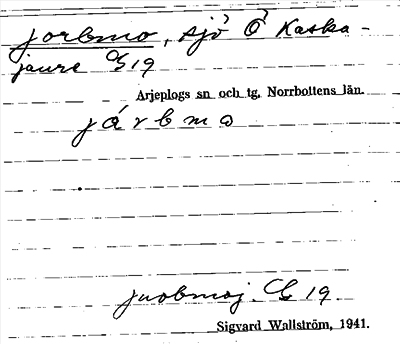 jorbmo, sjö Ö Kaska-
jaure 19
Arjeplogs sn och tg, Norrbottens län.
járbmo
juobmoj. 19.
Sigvard Wallström, 1941.